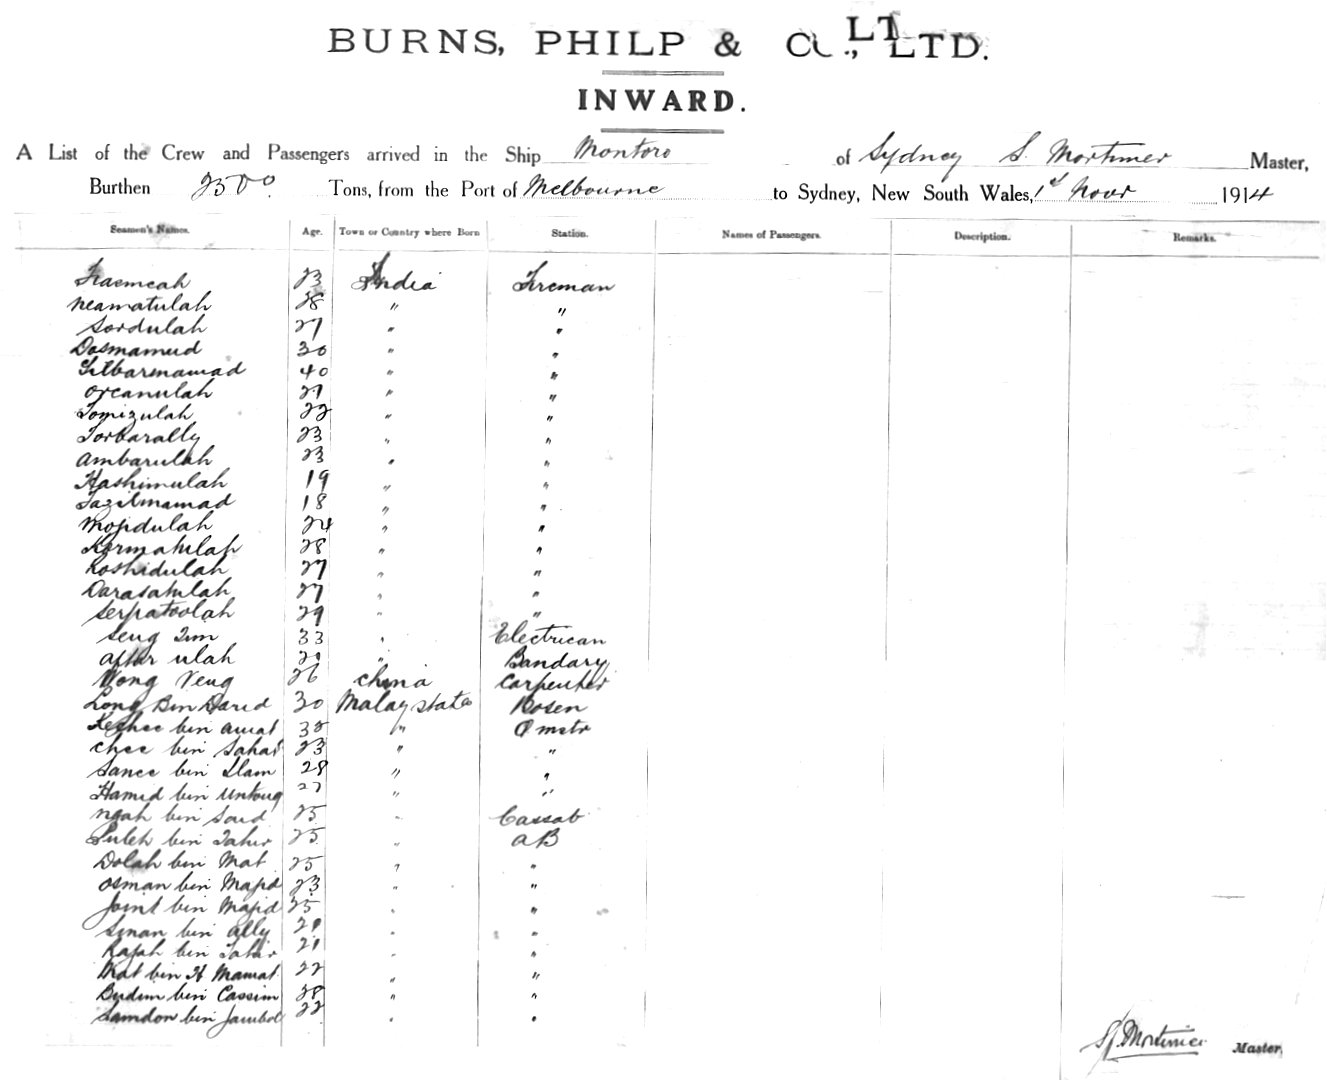 BURNS, PHILP & CO., LTD.
INWARD.
A List of the Crew and Passengers arrived in the Ship Montoro of Sydney S. Mortimer Master,
Burthen 2500 Tons, from the Port of Melbourne to Sydney, New South Wales, 1st Novr 1914
Seamen's Names. Age. Town or Country where Born Station. Names of Passengers. Description. Remarks.
23 India Fireman
Neamatulah 28 " "
Sordulah 27 " "
Dosmamud 30 " "
40 " "
Orcanulah 27 " "
Tomizulah 22 " "
Torbarally 23 " "
Ambarulah 23 " "
Hashimulah 19 " "
Fazilmamad 18 " "
Mojidulah 24 " "
Kermatulah 28 " "
Roshidulah 27 " "
Darasatulah 27 " "
Serpatoolah 29 " "
33 " Electrican
ulah " Bandary
Wong 26 China Carpenter
Long Bin David 30 Malay States Bosen
bin Awat " Qmstr
Chee bin Sahar 23 " "
Sanee bin Ilam 28 " "
Hamid bin Untong 27 " "
Ngah bin Said 25 " Cassab
bin Tahir 25 " AB
Dolah bin Mat 25 " "
Osman bin Majid 23 " "
Joint bin Majid 25 " "
Sman bin Ally " "
Rajah bin Tahir " "
Mat bin H Mamat 22 " "
Budim bin Cassim 28 " "
Samdon bin 22 " "
S. Mortimer Master.